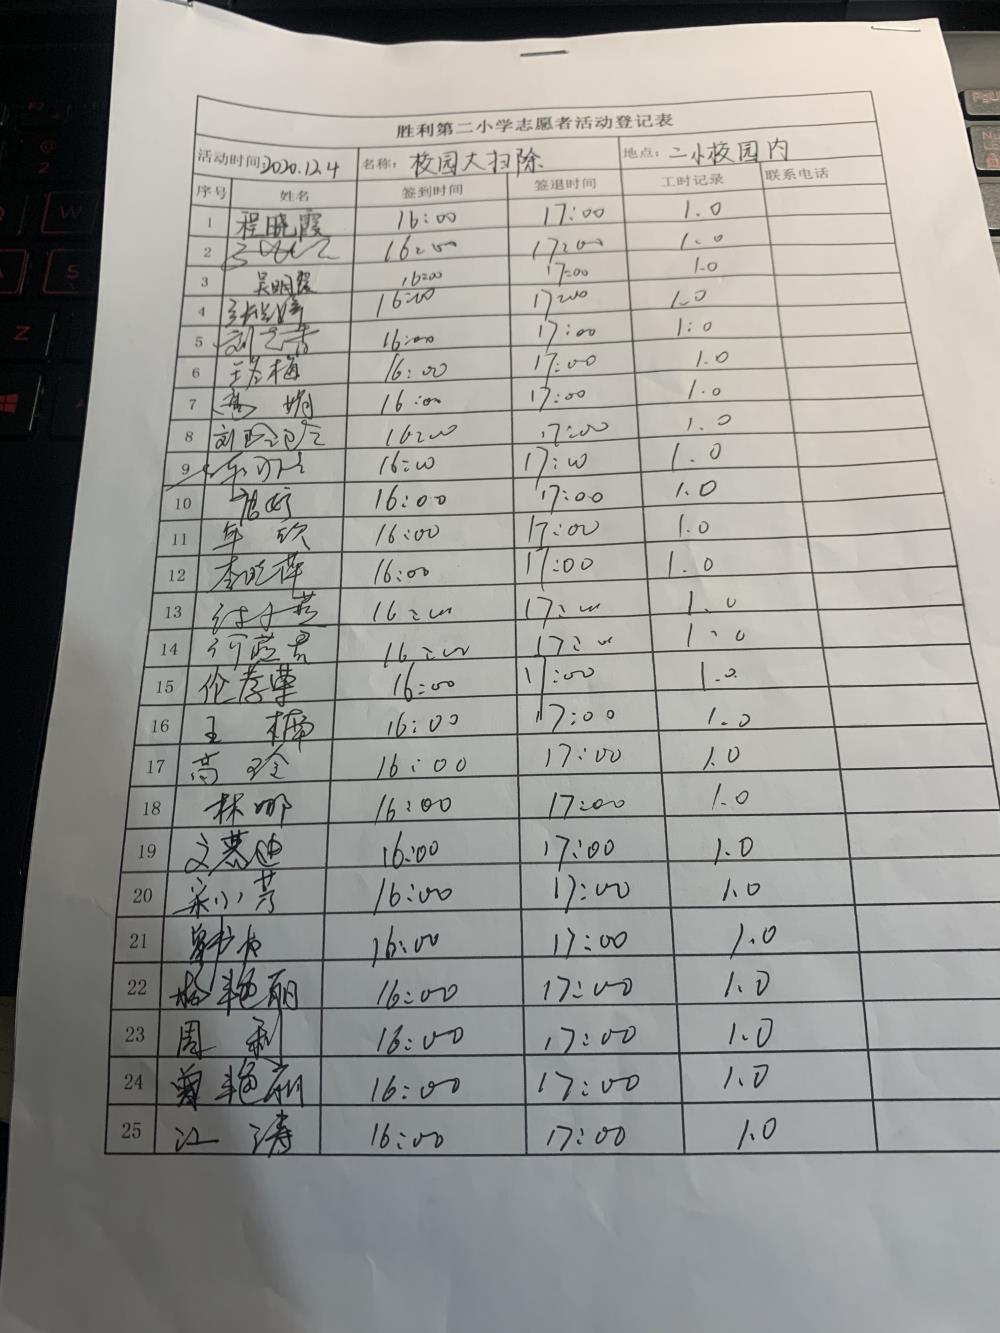 胜利第二小学志愿者活动登记表
活动时间:2020.12.4 名称：校园大扫除 地点：二小校园内
序号 姓名 签到时间 签退时间 工时记录 联系电话
1 程晓霞 16:00 17:00 1.0
2 16:00 17:00 1.0
3 吴明霞 16:00 17:00 1.0
4 16:00 17:00 1.0
5 16:00 17:00 1.0
6 16:00 17:00 1.0
7 高娟 16:00 17:00 1.0
8 16:00 17:00 1.0
9 16:00 17:00 1.0
10 16:00 17:00 1.0
11 牟欣 16:00 17:00 1.0
12 李晓萍 16:00 17:00 1.0
13 16:00 17:00 1.0
14 16:00 17:00 1.0
15 16:00 17:00 1.0
16 王楠 16:00 17:00 1.0
17 高玲 16:00 17:00 1.0
18 林娜 16:00 17:00 1.0
19 16:00 17:00 1.0
20 16:00 17:00 1.0
21 16:00 17:00 1.0
22 杨艳丽 16:00 17:00 1.0
23 周利 16:00 17:00 1.0
24 曾艳丽 16:00 17:00 1.0
25 江涛 16:00 17:00 1.0